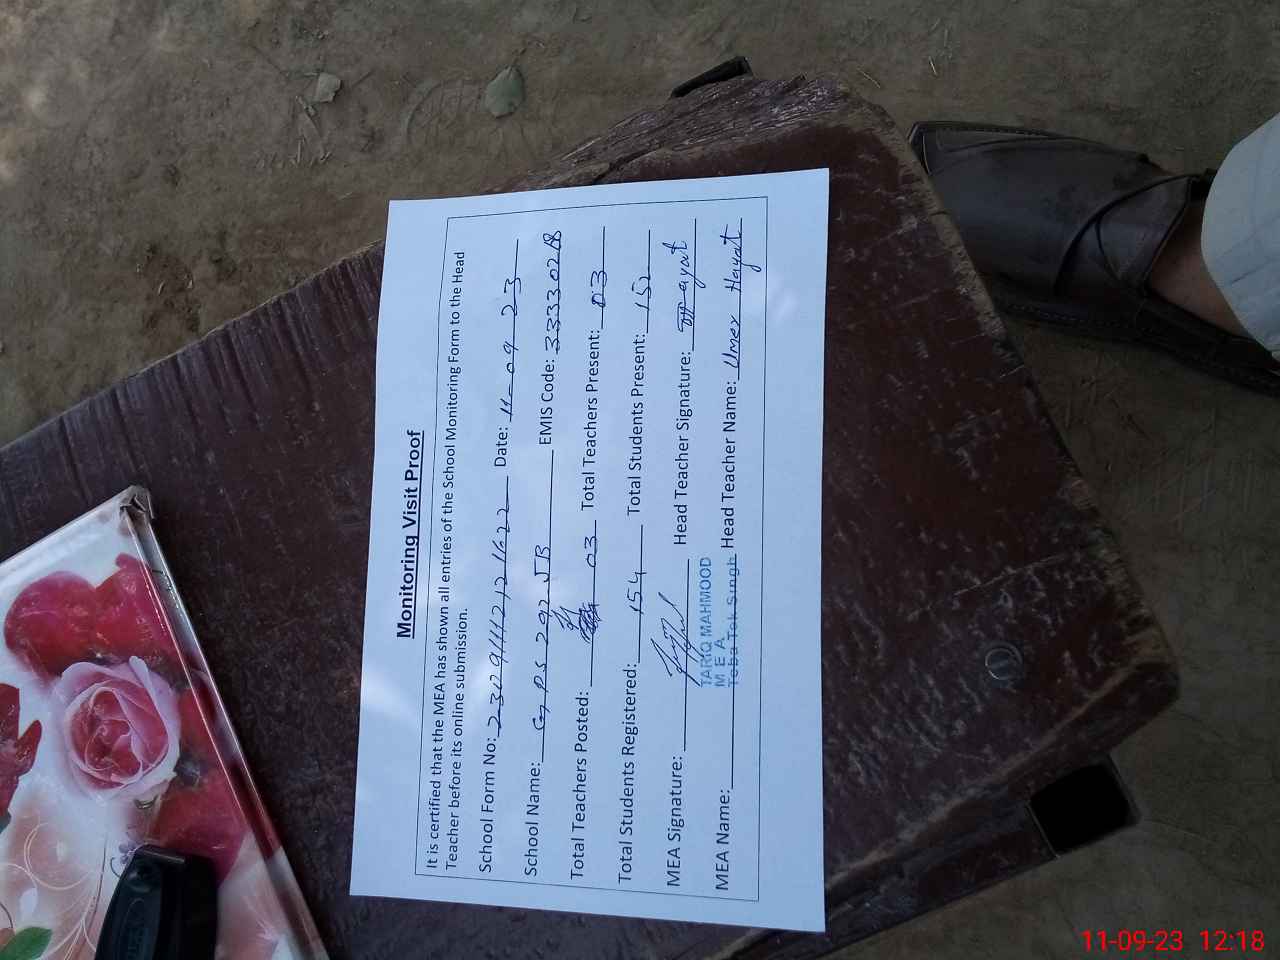 Monitoring Visit Proof
It is certified that the MEA has shown all entries of the School Monitoring Form to the Head
Teacher before its online submission.
School Form No: 2309111212 1622 Date: 11-09 23
School Name: GPS 297 JB EMIS Code: 33330218
Total Teachers Posted: 03 Total Teachers Present: 03
Total Students Registered: 154 Total Students Present: 152
MEA Signature: Head Teacher Signature: Hayat
TARIQ MAHMOOD
M E A
Toba Tek Singh
MEA Name: Head Teacher Name: Umer Hayat
11-09-23 12:18